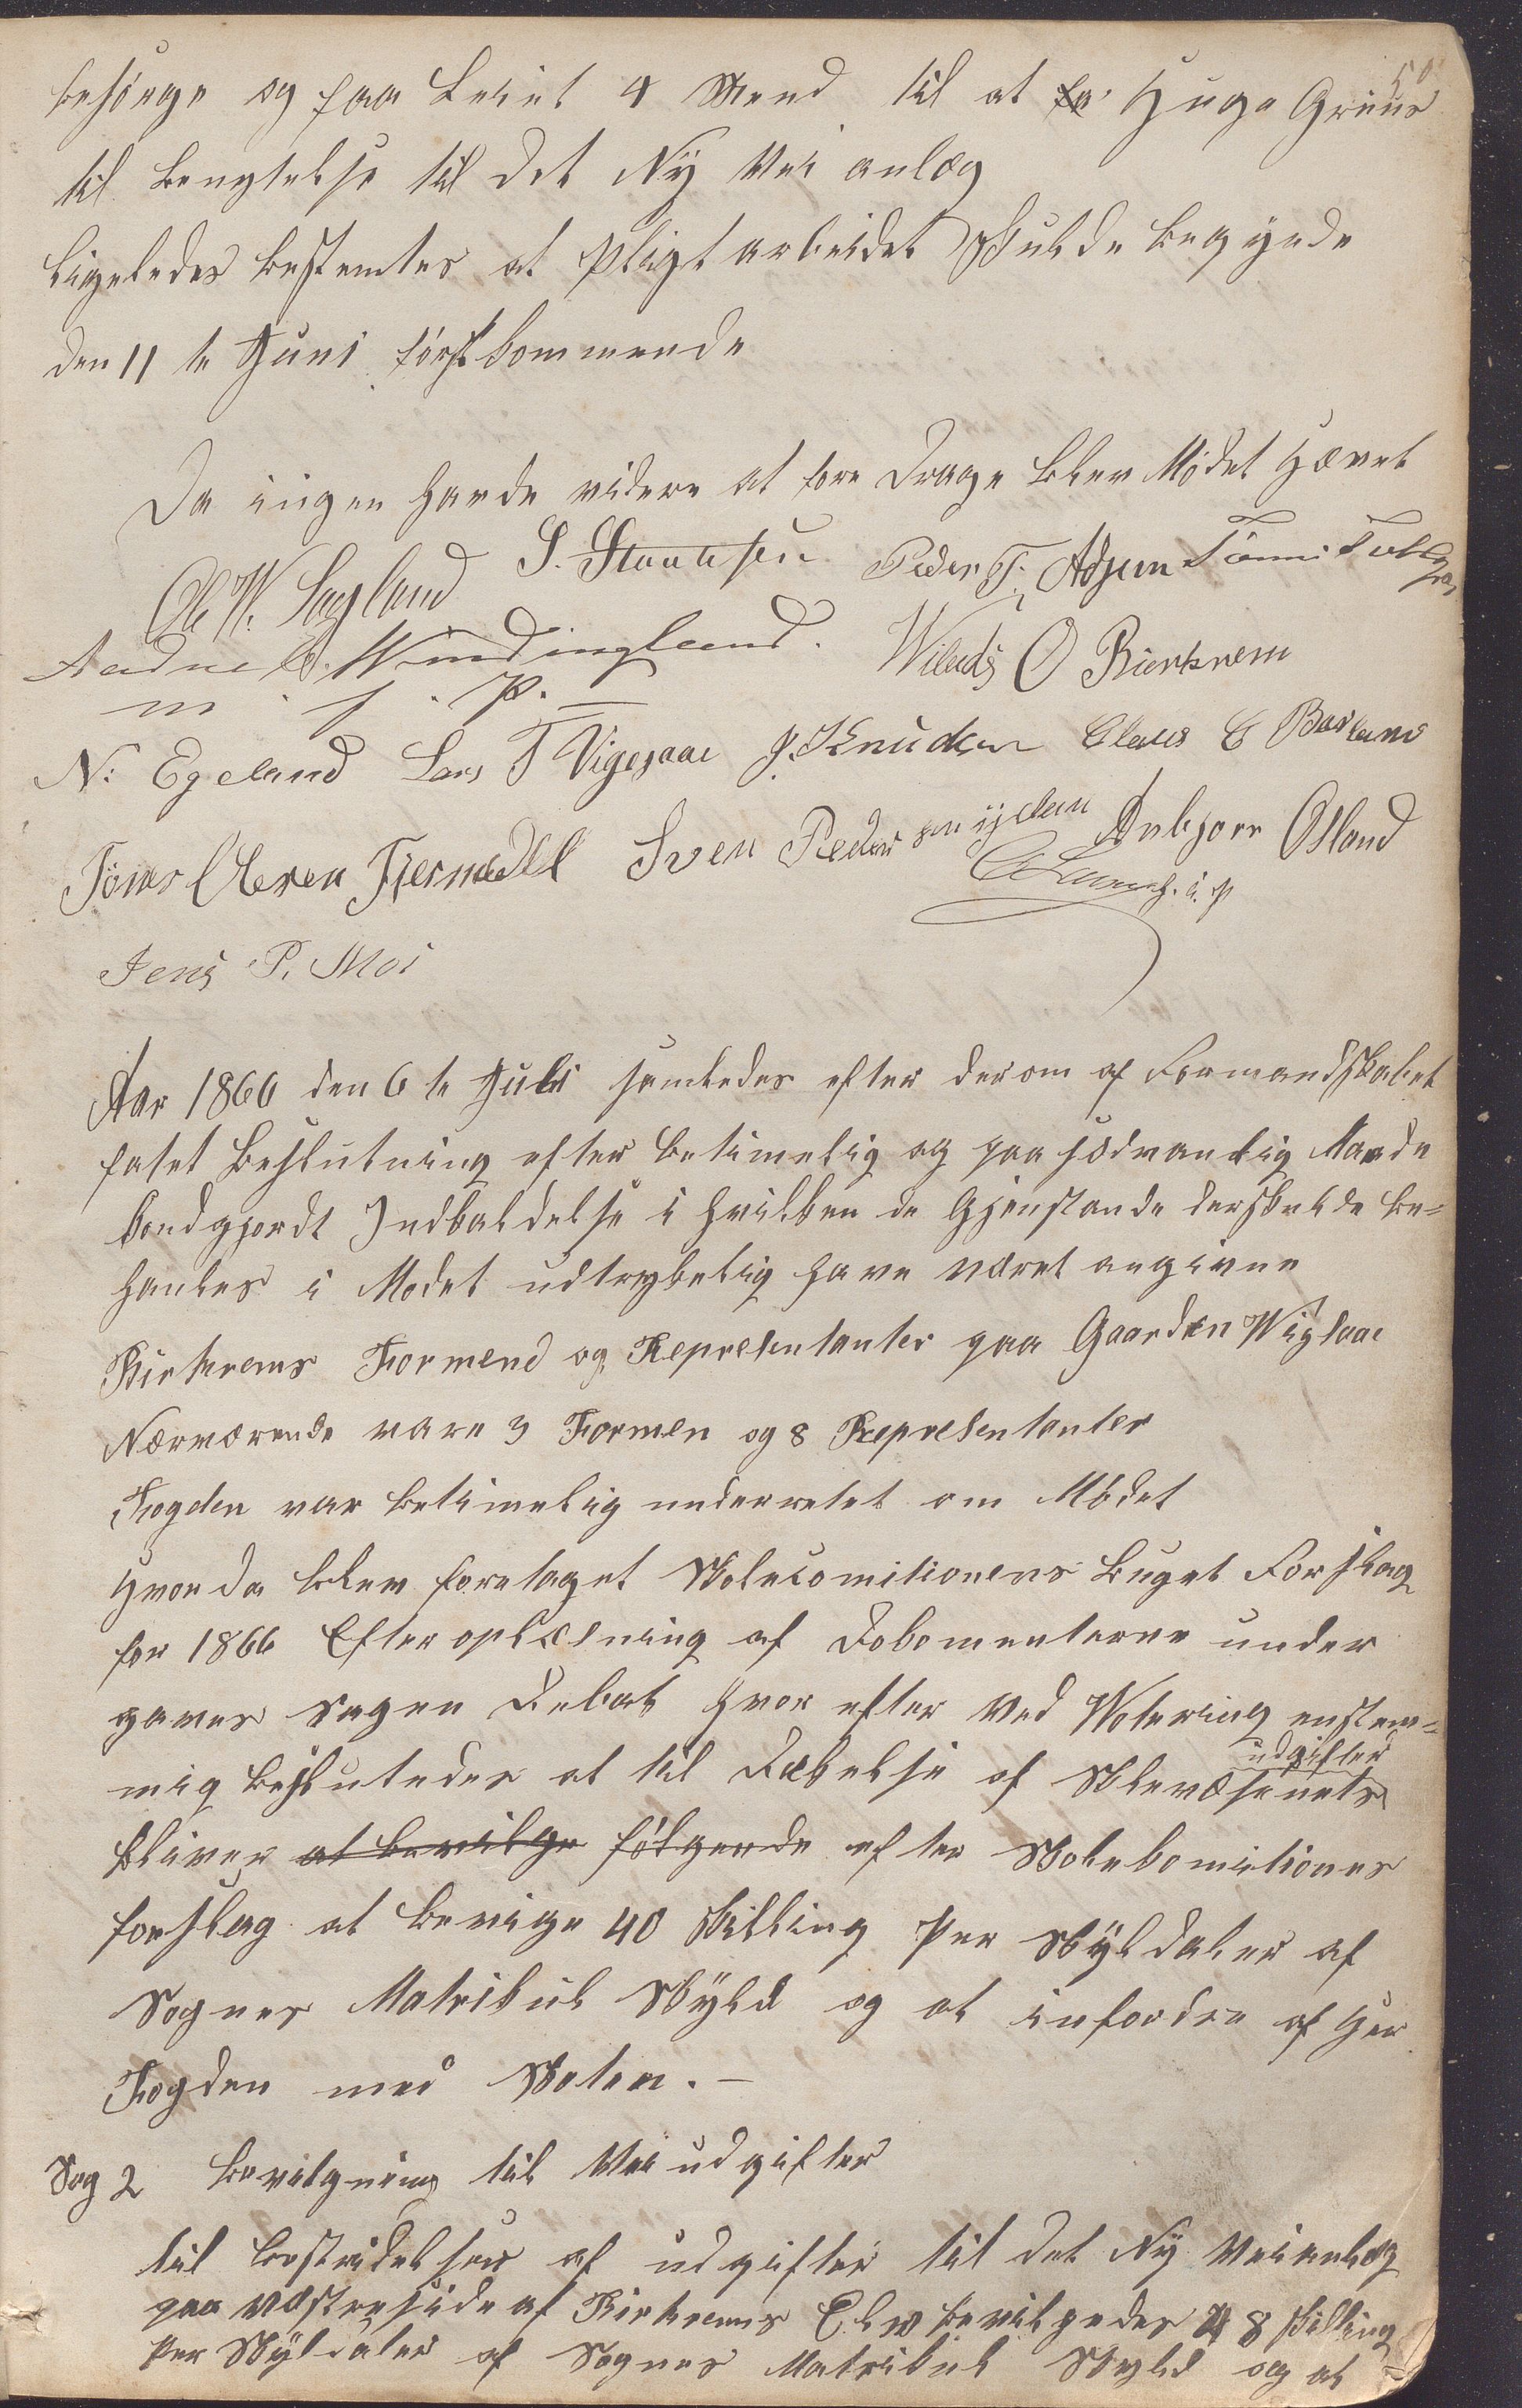 50
besörge og faa Leiet 4 Mend til at fa Huge Gruus
til benytelse til det Ny Vei anlæg
Ligeledes bestemtes at Pligtarbeidet skulde begynde
den 11 te Juni förstkommende
Da ingen havde videre at fore drage blev Mödet Hævet
Ole W. Løgland S. Svanesen Peder T. Adsjem Tönnes Tollefsen
Aadne C. Windingland. Wilads O Birkrem
m. f. P.
N: Egeland Lars T Vigesaae J. Knudsen Claus C Birkrem
Tönes Olesen Tjernedal Sven Pedersen Anbjorn Östland
h. i. P
Jens P. Moi
Aar 1866 den 6 te Juli samledes efter derom af Formandskabet
fatet Beslutning efter betimelig og paa sedvanlig Maade
kundgjordt Indkaldelse i hvilken de Gjenstande derskulde be=
hanles i Modet udtrykelig have været angivne
Birkrems Formend og Represententer paa Gaarden Wigsaae
Nærværende vare 3 Formen og 8 Represententer
Fogden var betimelig underretet om Mödet
Hvor da blev foretaget Skolecomitionens Buget Forslag
for 1866 Efter oplæsning af Dokomenterne under
gaves Sagen Debat hvor efter ved Wotering enstem=
udgifter
mig beslutedes at til Dækelse af Skolevæsenets
bliver at bevilge fölgende efter Skolekomitiones
forslag at bevige 40 Skilling Per Skyldaler af
Sognes Matrikul Skyld og at infordre af Her
Fogden med Skaten.–
Sag 2 Bevilgning til Vei udgifter
til bestridelser af udgifter til det Ny Veianlæg
paa Vestresiide af Birkrems Elv bevilgedes 48 skilling
per Skyldaler af Sognes Matrikul Skyld og at